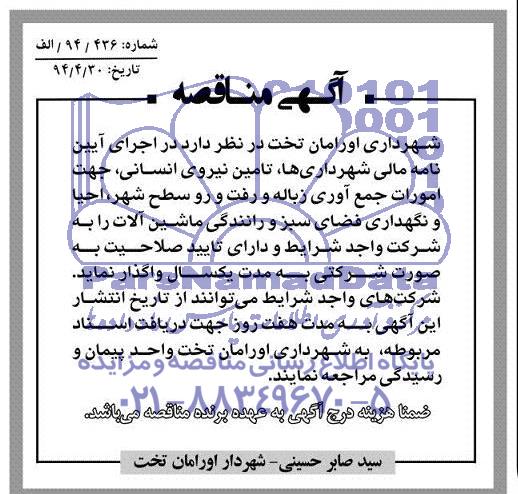 شماره: ۴۳۶ /۹۴ /الف
تاریخ: ۹۴/۴/۳۰
آگهی مناقصه
شهرداری اورامان تخت در نظر دارد در اجرای آیین
نامه مالی شهرداری‌ها، تامین نیروی انسانی، جهت
امورات جمع آوری زباله و رفت و رو سطح شهر، احیا
و نگهداری فضای سبز و رانندگی ماشین آلات را به
شرکت واجد شرایط و دارای تایید صلاحیت به
صورت شرکتی به مدت یکسال واگذار نماید.
ParsNamadData
شرکت‌های واجد شرایط می‌توانند از تاریخ انتشار
این آگهی به مدت هفت روز جهت دریافت اسناد
مربوطه، به شهرداری اورامان تخت واحد پیمان و
پایگاه اطلاع رسانی مناقصه و مزایده
رسیدگی مراجعه نمایند.
۰۲۱-۸۸۳۴۹۶۷۰-۵
ضمنا هزینه درج آگهی به عهده برنده مناقصه می‌باشد.
سید صابر حسینی- شهردار اورامان تخت